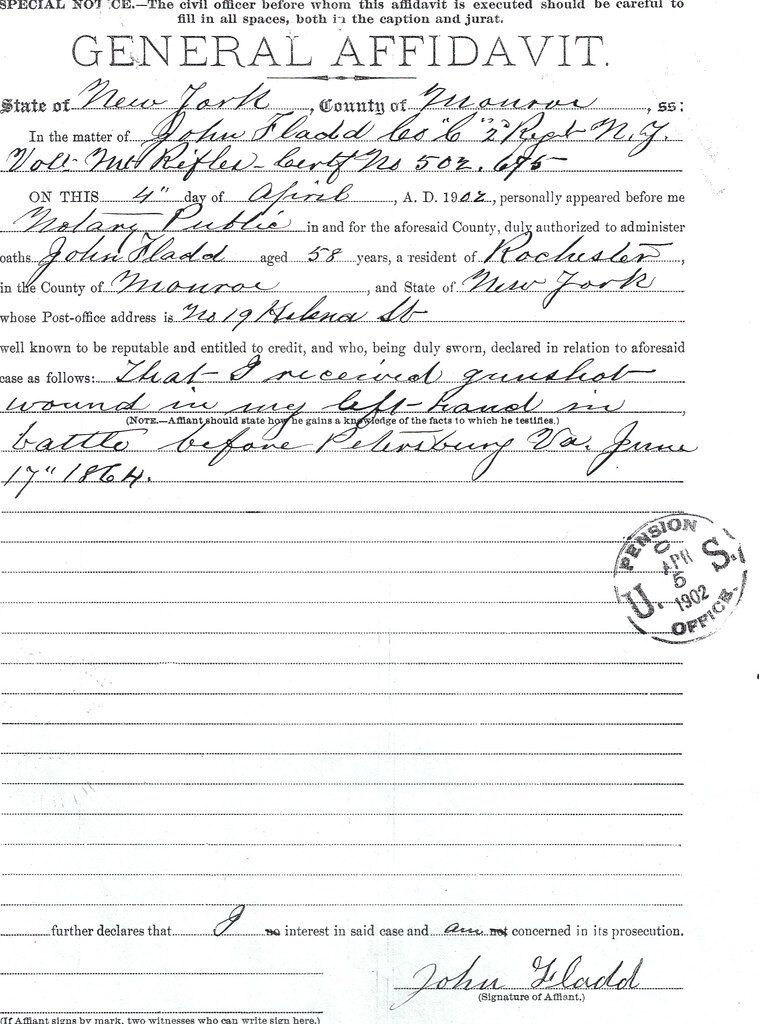 SPECIAL NOTICE.—The civil officer before whom this affidavit is executed should be careful to
fill in all spaces, both in the caption and jurat.
GENERAL AFFIDAVIT.
State of New York, County of Monroe, ss:
In the matter of John Fladd Co "C" 2d Regt N.Y.
Volt. Mt Rifles - Certf No 502.675
ON THIS 4" day of April, A. D. 1902, personally appeared before me
Notary Public in and for the aforesaid County, duly authorized to administer
oaths John Fladd aged 58 years, a resident of Rochester,
in the County of Monroe, and State of New York
whose Post-office address is No 19 Helena St
well known to be reputable and entitled to credit, and who, being duly sworn, declared in relation to aforesaid
case as follows: That I received gunshot
wound in my left-hand in
(NOTE.—Affiant should state how he gains a knowledge of the facts to which he testifies.)
battle before Petersburg Va. June
17" 1864.
PENSION
U. S.
APR
5
1902
OFFICE.
further declares that I no interest in said case and am not concerned in its prosecution.
John Fladd
(Signature of Affiant.)
(If Affiant signs by mark, two witnesses who can write sign here.)